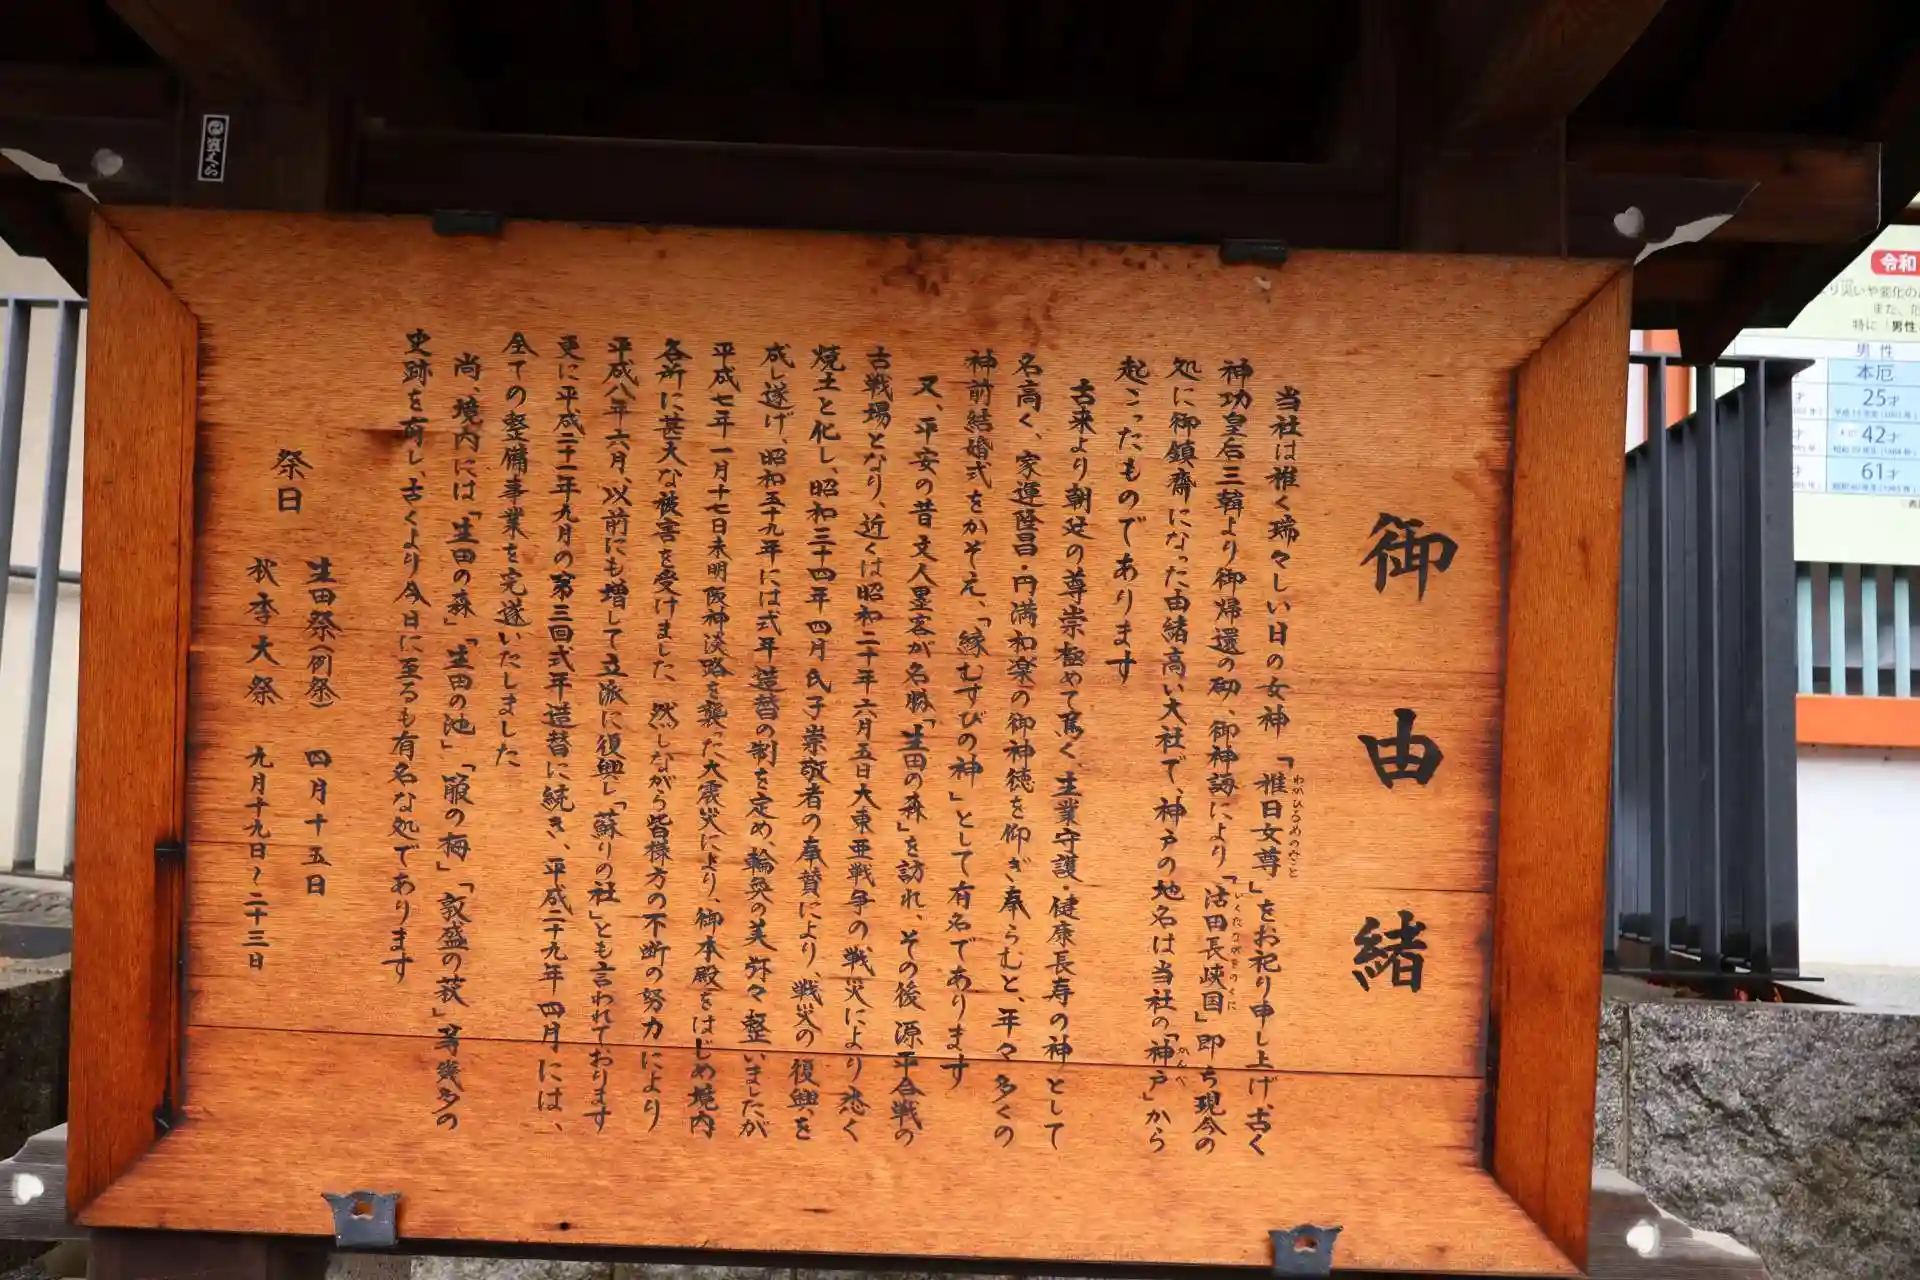 御由緒
当社は稚く瑞々しい日の女神　「稚日女尊」をお祀り申し上げ、古く
わかひるめのみこと
神功皇后三韓より御帰還の砌、御神誨により「活田長峡国」即ち現今の
いくたながをのくに
処に御鎮齋になった由緒高い大社で、神戸の地名は当社の「神戸」から
かんべ
起こったものであります
古来より朝廷の尊崇極めて篤く、生業守護・健康長寿の神として
名高く、家運隆昌・円満和楽の御神徳を仰ぎ奉らむと、年々多くの
神前結婚式をかぞえ、「縁むすびの神」として有名であります
又、平安の昔文人墨客が名勝「生田の森」を訪れ、その後 源平合戦の
古戦場となり、近くは昭和二十年六月五日大東亜戦争の戦災により悉く
焼土と化し、昭和三十四年四月氏子崇敬者の奉賛により、戦災の復興を
成し遂げ、昭和五十九年には式年造替の制を定め、輪奐の美弥々整いましたが
平成七年一月十七日未明阪神淡路を襲った大震災により、御本殿をはじめ境内
各所に甚大な被害を受けました 然しながら皆様方の不断の努力により
平成八年六月、以前にも増して立派に復興し「蘇りの社」とも言われております
更に平成二十一年九月の第三回式年造替に続き、平成二十九年四月には、
全ての整備事業を完遂いたしました
尚、境内には「生田の森」「生田の池」「箙の梅」「敦盛の萩」等幾多の
史跡を有し、古くより今日に至るも有名な処であります
祭日
生田祭（例祭）　四月十五日
秋季大祭　九月十九日～二十三日
令和
また、
特に「男性
男性
本厄
25才
42才
61才